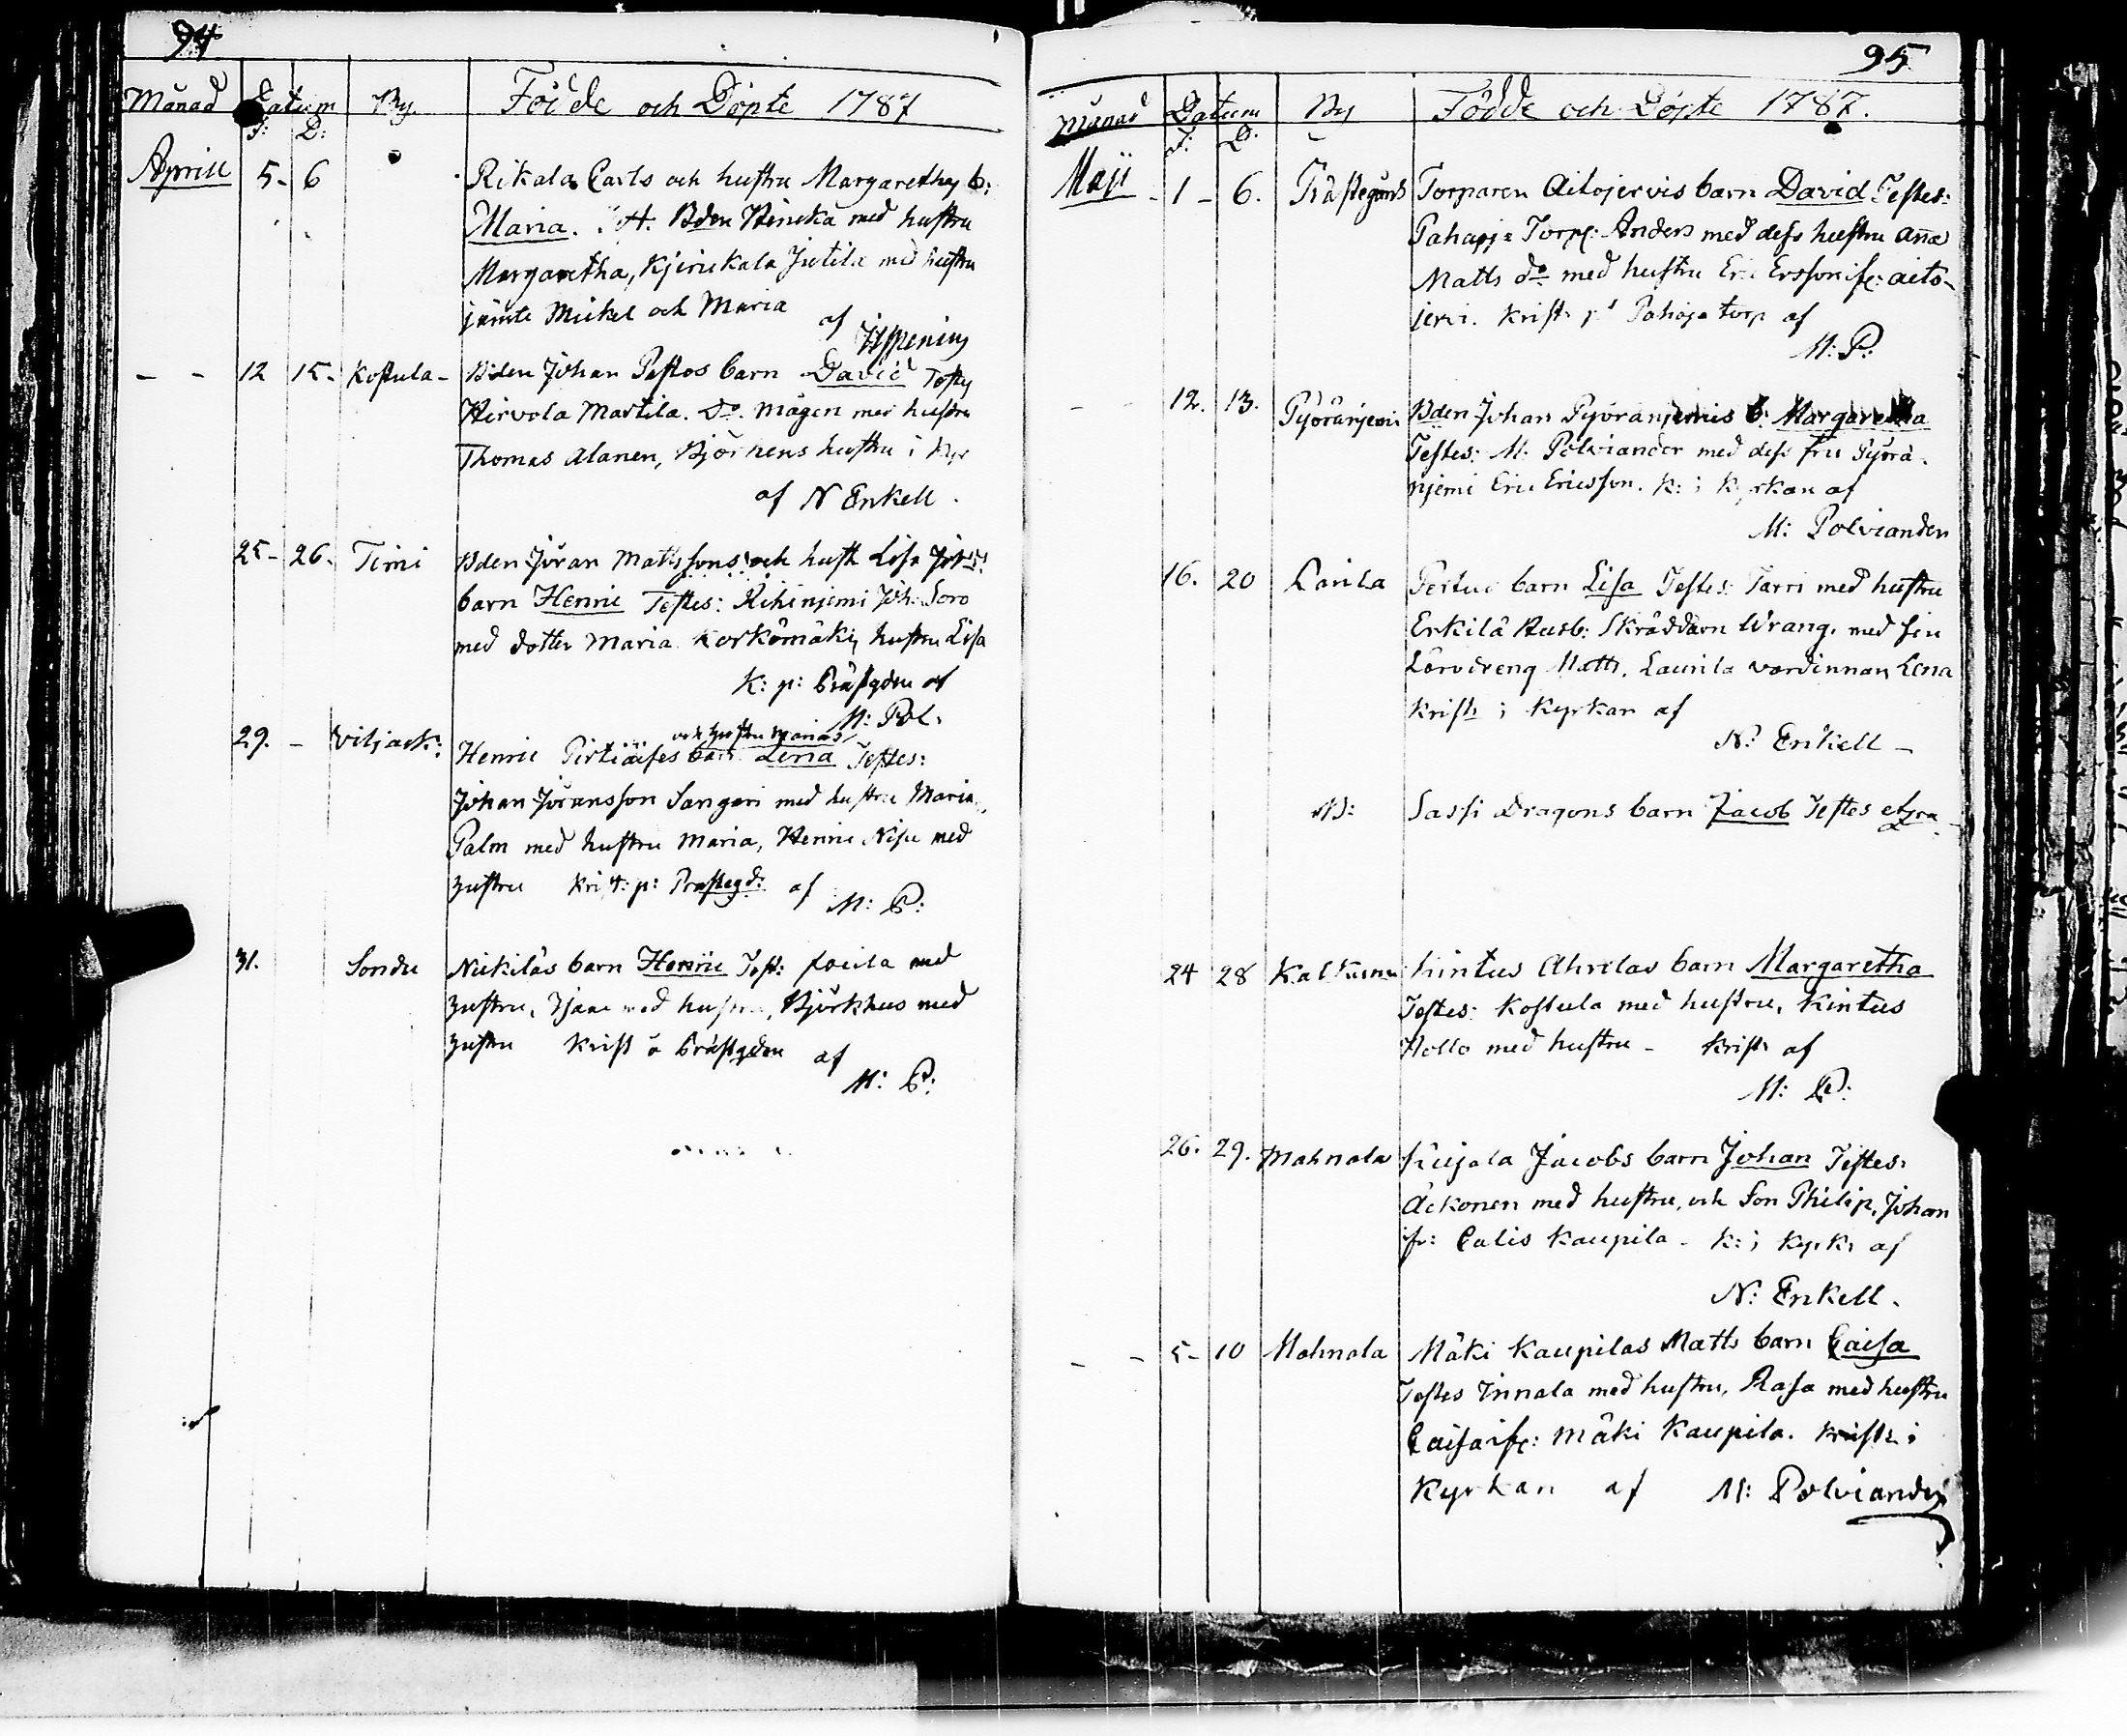 94
Månad Datum By. Födde och Döpte 1787
F: D:
Aprill 5- 6 Rikala Carls och hustru Margarethas b:
Maria. Bden Heneka med hustru
Margaretha, Kjerickala Jutila med hustru
jämte Mickel och Maria af
12 15. Kostula- Bden Johan Pestos barn David Testes
Hirvola Martila. Do. mågen med hustru
Thomas Alanen, Björkens hustru i
af N Enkell.
25- 26. Timi Bden Jöran Mattssons och hust Lisa
barn Henric Testes: Kihinjemi Joh: Soro
med dotter Maria. Korkömäki hustru Lisa
K: p: Prästgden af
M: Pol.
och hustru Marias
29. - Viljack: Henric Pirtiäises barn Lena Testes:
Johan Jöransson Sangari med hustru Maria,
Palm med hustru Maria, Henric Nisu med
hustru Krist: p: Prästegd: af
M: P:
31. Sondu Nickiläs barn Henric Test: med
hustru, med hustru, Björkhus med
hustru Krist å Prästgden af
M: P:
95
Månad Datum By Födde och Döpte 1787.
F: D.
Maji - 1 - 6. Prästegårds Torparen Aitojervis barn David Testes:
Pahaja Torp: Anders med dess hustru Anna
Matts do med hustru Eric Ersson Aito-
jervi. Krist: på Pahaja torp af
M: P:
12. 13. Pyöränjemi Bden Johan Pyöränjemis b: Margaretha
Testes: M: Polviander med dess fru Pyörä-
njemi Eric Ericsson. K: i Kyrkan af
M: Polviander
16. 20 Laurila Pertus barn Lisa Testes: Tarri med hustru
Erkilä Husb: Skräddarn Wrang, med sin
Lärodreng Matts. Laurila värdinnan Lena
Krist: i Kyrkan af
N: Enkell -
Sassi Dragons barn Jacob Testes
24 28 Kalkusna Kintus Ahvelas barn Margaretha
Testes: Kostula med hustru, Kintus
Hollo med hustru - Krist: af
M: P:
26. 29. Mahnala Kujala Jacobs barn Johan Testes:
Äckonen med hustru, och Son Philip, Johan
Calis Kaupila - K: i Kyrk: af
N: Enkell.
5- 10 Mahnala Mäki Kaupilas Matts barn Caisa
Testes Innala med hustru, Rasa med hustru
Caisa Mäki Kaupila. Krist: i
Kyrkan af M: Polviander